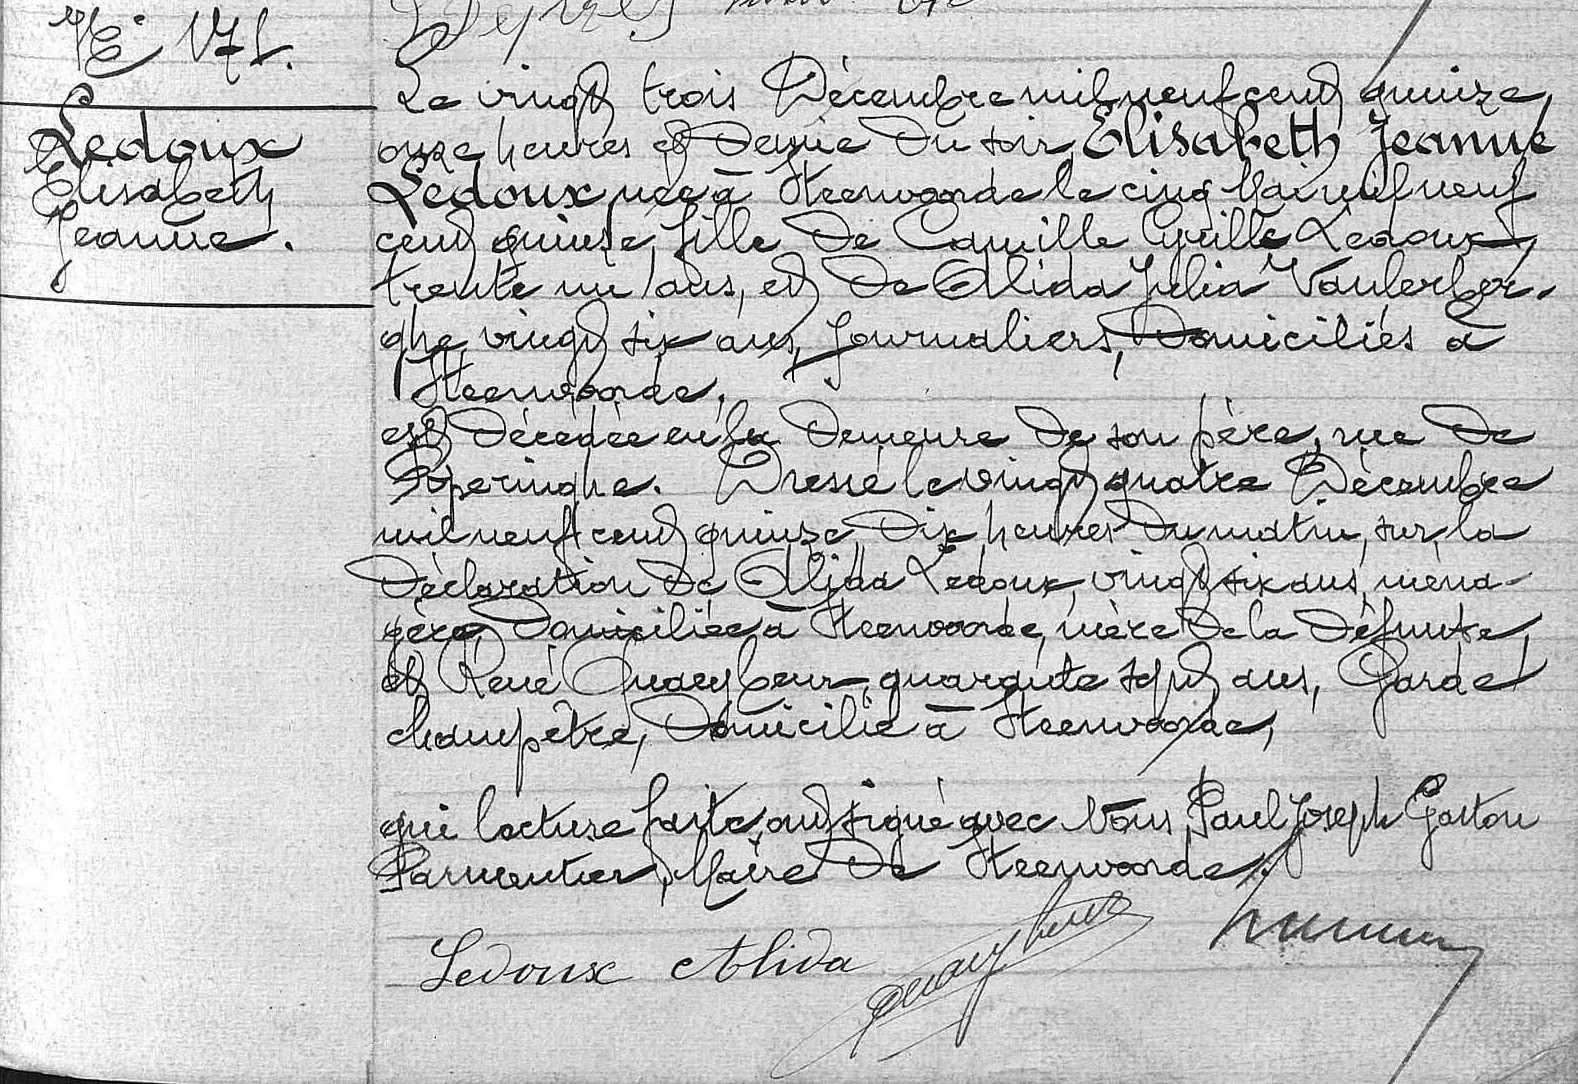 N° 171.
Ledoux
Elisabeth
Jeanne.
Le vingt trois Décembre mil neuf cent quinze,
onze heures et demie du soir, Elisabeth Jeanne
Ledoux, née à Steenvoorde le cinq Mai mil neuf
cent quinze, fille de Camille Cyrille Ledoux,
trente un ans, et de Alida Julia Vanlerber-
ghe, vingt six ans, journaliers, domiciliés à
Steenvoorde,
est décédée en la demeure de son père, rue de
Poperinghe. Dressé le vingt quatre Décembre
mil neuf cent quinze, dix heures du matin, sur la
déclaration de Alida Ledoux, vingt six ans, ména-
gère, domiciliée à Steenvoorde, mère de la défunte,
et René Quaeybeur, quarante sept ans, Garde
champêtre, domicilié à Steenvoorde,
qui lecture faite, ont signé avec Nous, Paul Joseph Gaston
Parmentier, Maire de Steenvoorde.
Ledoux Alida